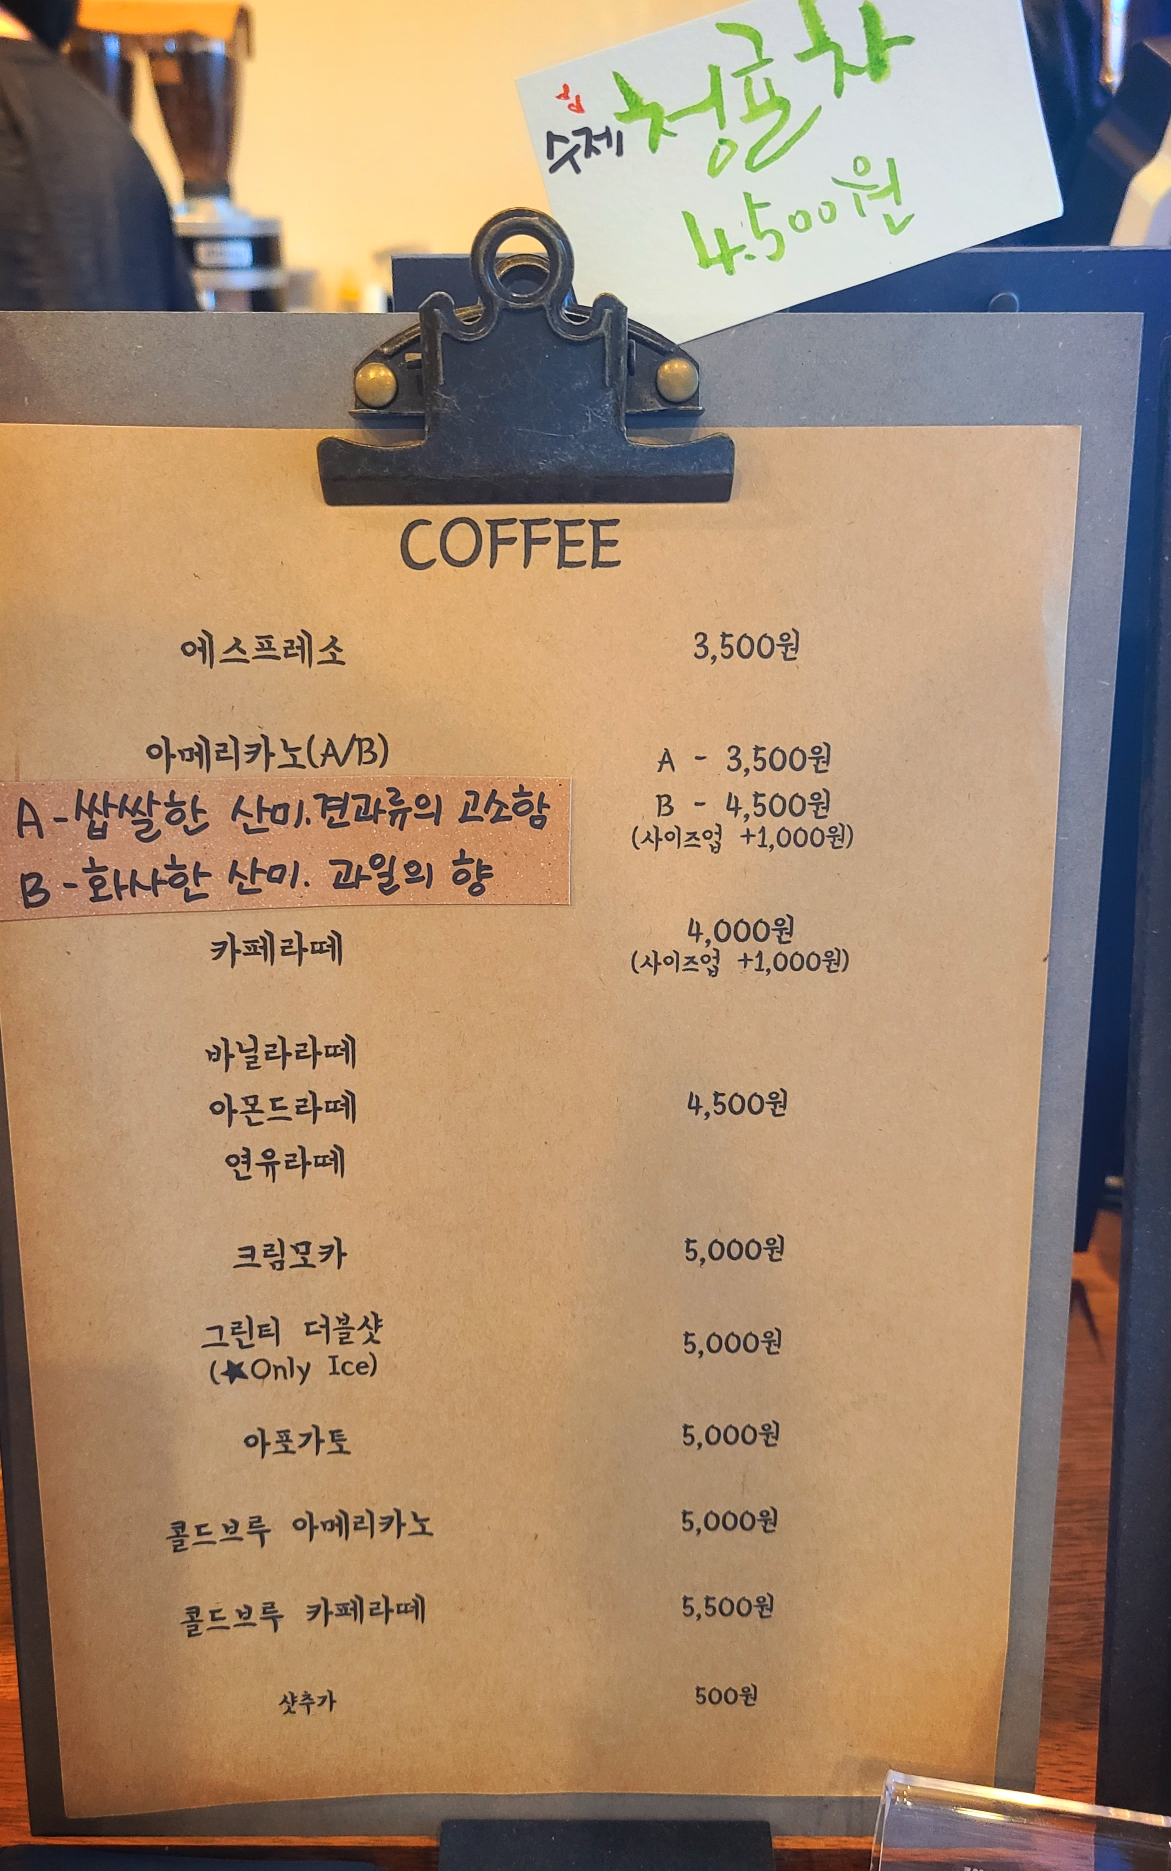 수제 청귤차
4.500원
COFFEE
에스프레소 3,500원
아메리카노(A/B) A - 3,500원
A - 쌉쌀한 산미. 견과류의 고소함
B - 4,500원
(사이즈업 +1,000원)
B - 화사한 산미. 과일의 향
카페라떼 4,000원
(사이즈업 +1,000원)
바닐라라떼
아몬드라떼 4,500원
연유라떼
크림모카 5,000원
그린티 더블샷 5,000원
(★Only Ice)
아포가토 5,000원
콜드브루 아메리카노 5,000원
콜드브루 카페라떼 5,500원
샷추가 500원